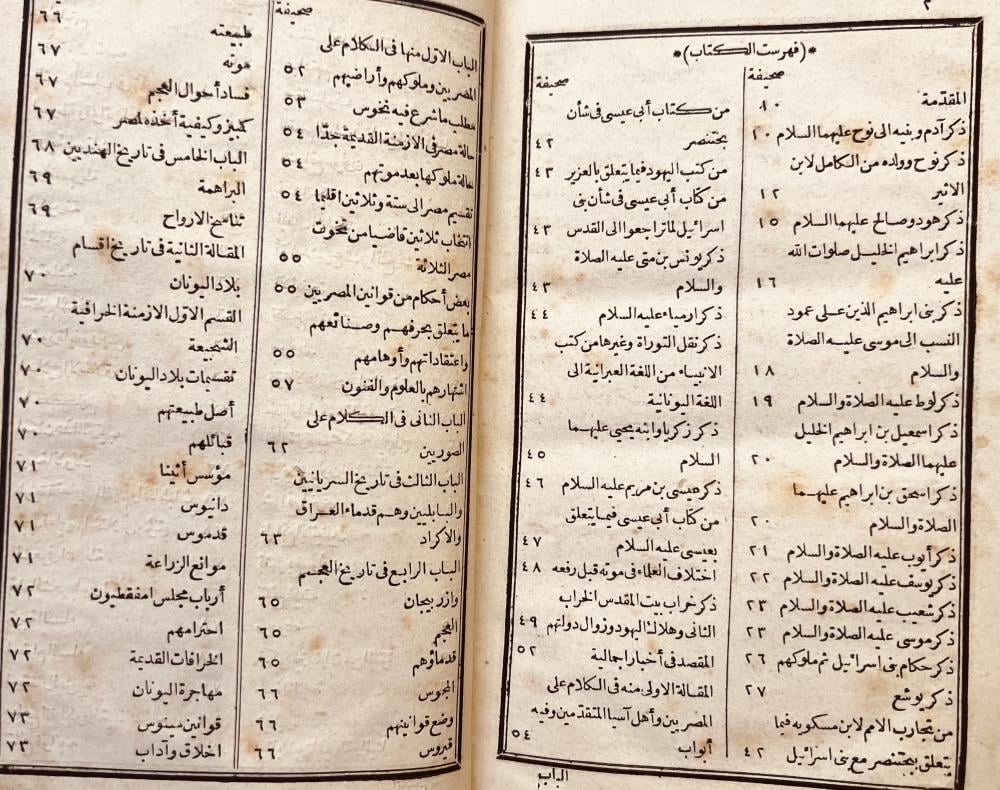 ٢
*(فهرست الكتاب)*
صحيفة
المقدمة ١٠
ذكر آدم وبنيه الى نوح عليهما السلام ١٠
ذكر نوح وولده من الكامل لابن
الاثير ١٢
ذكر هود وصالح عليهما السلام ١٥
ذكر ابراهيم الخليل صلوات الله
عليه ١٦
ذكر بنى ابراهيم الذين على عمود
النسب الى موسى عليه الصلاة
والسلام ١٨
ذكر لوط عليه الصلاة والسلام ١٩
ذكر اسمعيل بن ابراهيم الخليل
عليهما الصلاة والسلام ٢٠
ذكر اسحق بن ابراهيم عليهما
الصلاة والسلام ٢٠
ذكر أيوب عليه الصلاة والسلام ٢١
ذكر يوسف عليه الصلاة والسلام ٢٢
ذكر شعيب عليه الصلاة والسلام ٢٣
ذكر موسى عليه الصلاة والسلام ٢٣
ذكر حكام بنى اسرائيل ثم ملوكهم ٢٦
ذكر يوشع ٢٧
من تجارب الامم لابن مسكويه فيما
يتعلق ببختنصر مع بنى اسرائيل ٤٢
صحيفة
من كتاب أبى عيسى فى شأن
بختنصر ٤٢
من كتب اليهود فيما يتعلق بالعزير ٤٣
من كتاب أبى عيسى فى شأن بنى
اسرائيل لما تراجعوا الى القدس ٤٣
ذكر يونس بن متى عليه الصلاة
والسلام ٤٣
ذكر ارمياء عليه السلام ٤٤
ذكر نقل التوراة وغيرها من كتب
الانبياء من اللغة العبرانية الى
اللغة اليونانية ٤٤
ذكر زكريا وابنه يحيى عليهما
السلام ٤٥
ذكر عيسى بن مريم عليه السلام ٤٦
من كتاب أبى عيسى فيما يتعلق
بعيسى عليه السلام ٤٧
اختلاف العلماء فى موته قبل رفعه ٤٨
ذكر خراب بيت المقدس الخراب
الثانى وهلاك اليهود وزوال دولتهم ٤٩
المقصد فى أخبار اجمالية ٥٢
المقالة الاولى منه فى الكلام على
المصريين وأهل آسيا المتقدمين وفيه
أبواب ٥٤
الباب
صحيفة
الباب الاول منها فى الكلام على
المصريين وملوكهم وأراضيهم ٥٢
مطلب ما شرع فيه نخوس ٥٣
حالة مصر فى الازمنة القديمة جدا ٥٤
حالة ملوكها بعد موتهم ٥٤
تقسيم مصر الى ستة وثلاثين اقليما ٥٤
انتخاب ثلاثين قاضيا من تخوت
مصر الثلاثة ٥٥
بعض أحكام من قوانين المصريين ٥٥
ما يتعلق بحرفهم وصنائعهم
واعتقاداتهم وأوهامهم ٥٥
اشتهارهم بالعلوم والفنون ٥٧
الباب الثانى فى الكلام على
الصوريين ٦٢
الباب الثالث فى تاريخ السريانيين
والبابليين وهم قدماء العراق
والاكراد ٦٣
الباب الرابع فى تاريخ العجم
وازربيجان ٦٥
العجم ٦٥
قدماؤهم ٦٥
المجوس ٦٦
وضع قوانينهم ٦٦
قيروس ٦٦
طبيعته ٦٦
موته ٦٧
فساد أحوال العجم ٦٧
كمبيز وكيفية أخذه لمصر ٦٧
الباب الخامس فى تاريخ الهنديين ٦٨
البراهمة ٦٩
تناسخ الارواح ٦٩
المقالة الثانية فى تاريخ اقسام
بلاد اليونان ٧٠
القسم الاول الازمنة الخرافية
الشجيعة ٧٠
تقسيمات بلاد اليونان ٧٠
أصل طبيعتهم ٧٠
قبائلهم ٧٠
مؤسس أثينا ٧١
دانيوس ٧١
قدموس ٧١
موانع الزراعة ٧١
أرباب مجلس امفقطيون ٧٢
احترامهم ٧٢
الخرافات القديمة ٧٢
مهاجرة اليونان ٧٢
قوانين مينوس ٧٣
اخلاق وآداب ٧٣